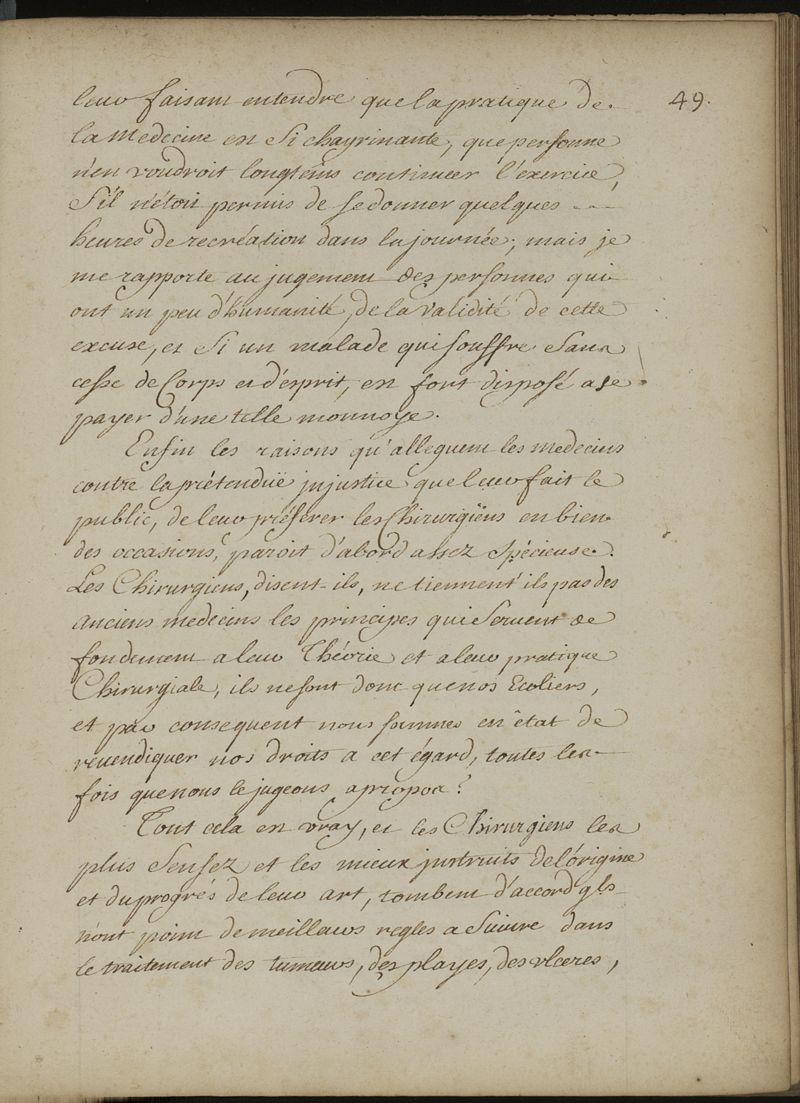 49.
leur faisant entendre que la pratique de
la medecine est si chagrinante, que personne
n'en voudroit longtems continuer l'exercice,
s'il n'étoit permis de se donner quelques ---
heures de recréation dans la journée; mais je
me rapporte au jugement des personnes qui
ont un peu d'humanité, de la validité de cette
excuse, et si un malade qui souffre sans
cesse de Corps et d'esprit, est fort disposé a se
payer d'une telle monnoye.
Enfin les raisons qu'alleguent les medecins
contre la prétenduë injustice que leur fait le
public, de leur préferer les Chirurgiens en bien
des occasions, paroit d'abord assez spécieuse.
Les Chirurgiens, disent-ils, ne tiennent ils pas des
anciens medecins les principes qui servent de
fondement a leur Théorie et a leur pratique
Chirurgiale, ils ne sont donc que nos Ecoliers,
et par consequent nous sommes en état de
revendiquer nos droits a cet égard, toutes les
fois que nous le jugeons apropos?
Tout cela est vray, et les Chirurgiens les
plus sensez et les mieux instruits de l'origine
et du progrés de leur art, tombent d'accord qls
n'ont point de meilleurs regles a suivre dans
le traitement des tumeurs, des playes, des ulceres,